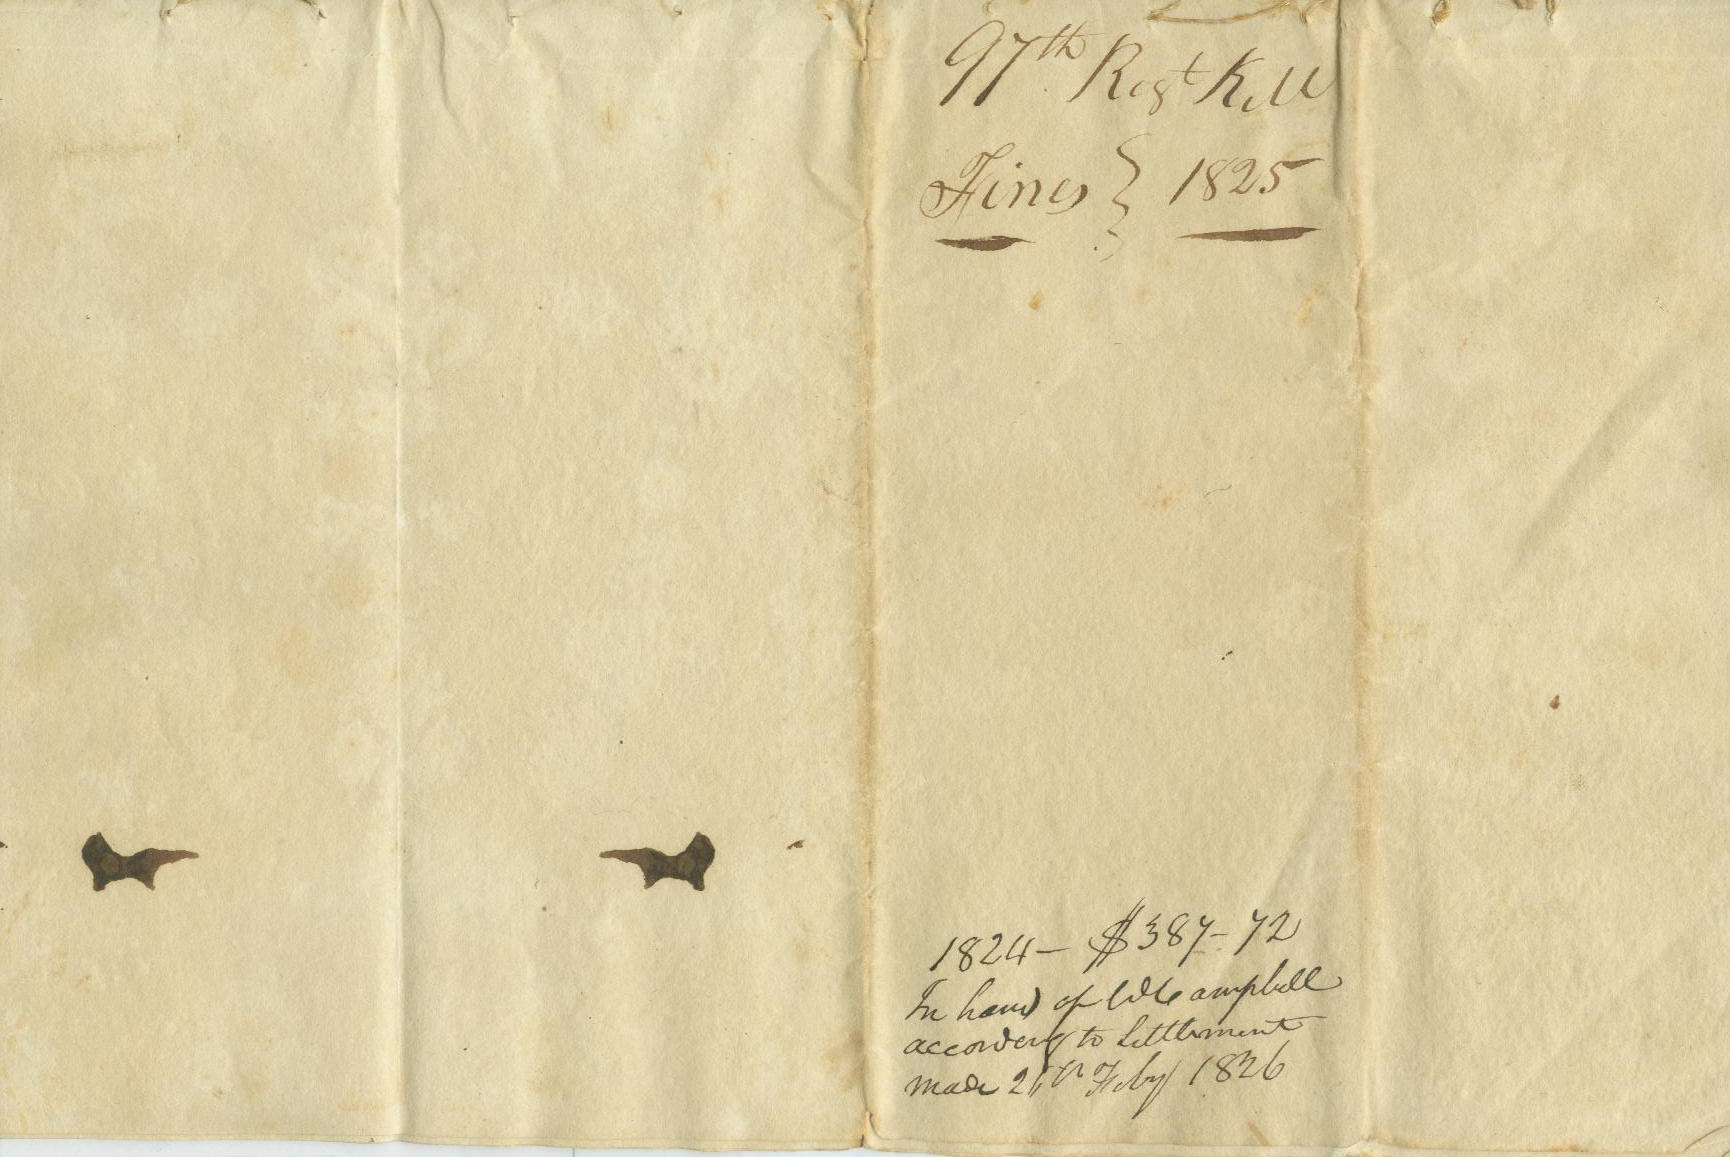 97th Regt
Fines } 1825
1824 — $387 - 72
In hand of Campbell
according to Settlement
made 21th Feby 1826